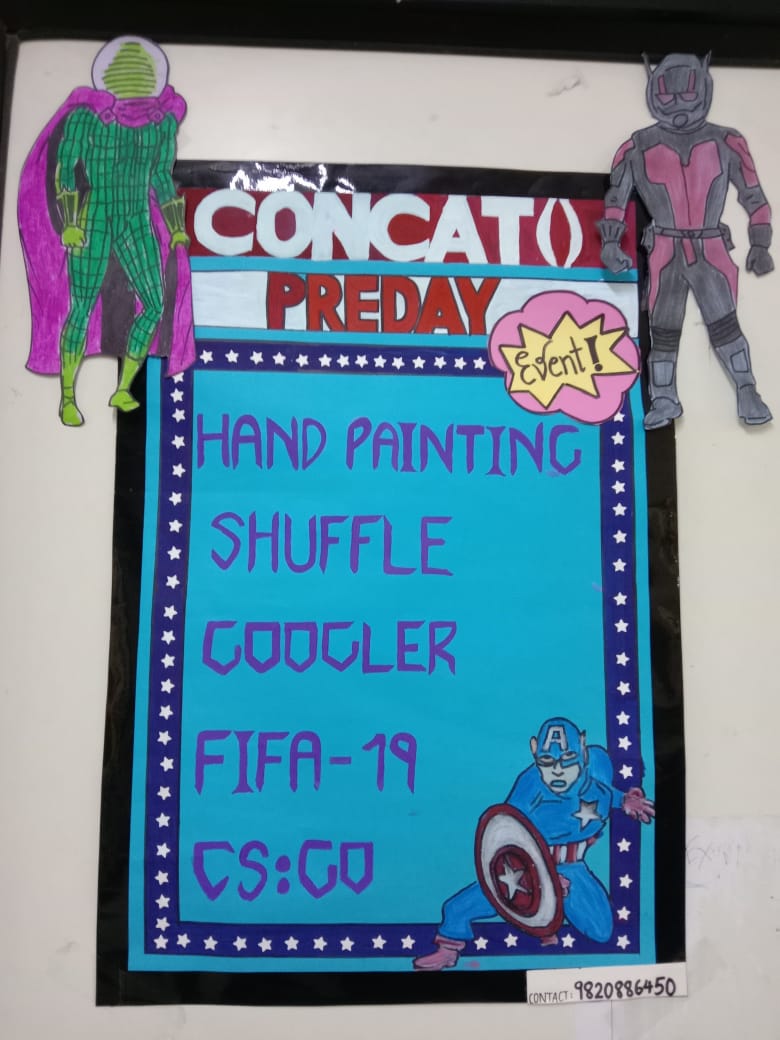 CONCAT()
PREDAY
Event!
HAND PAINTING
SHUFFLE
GOOGLER
FIFA-19
CS:GO
A
CONTACT: 9820886450